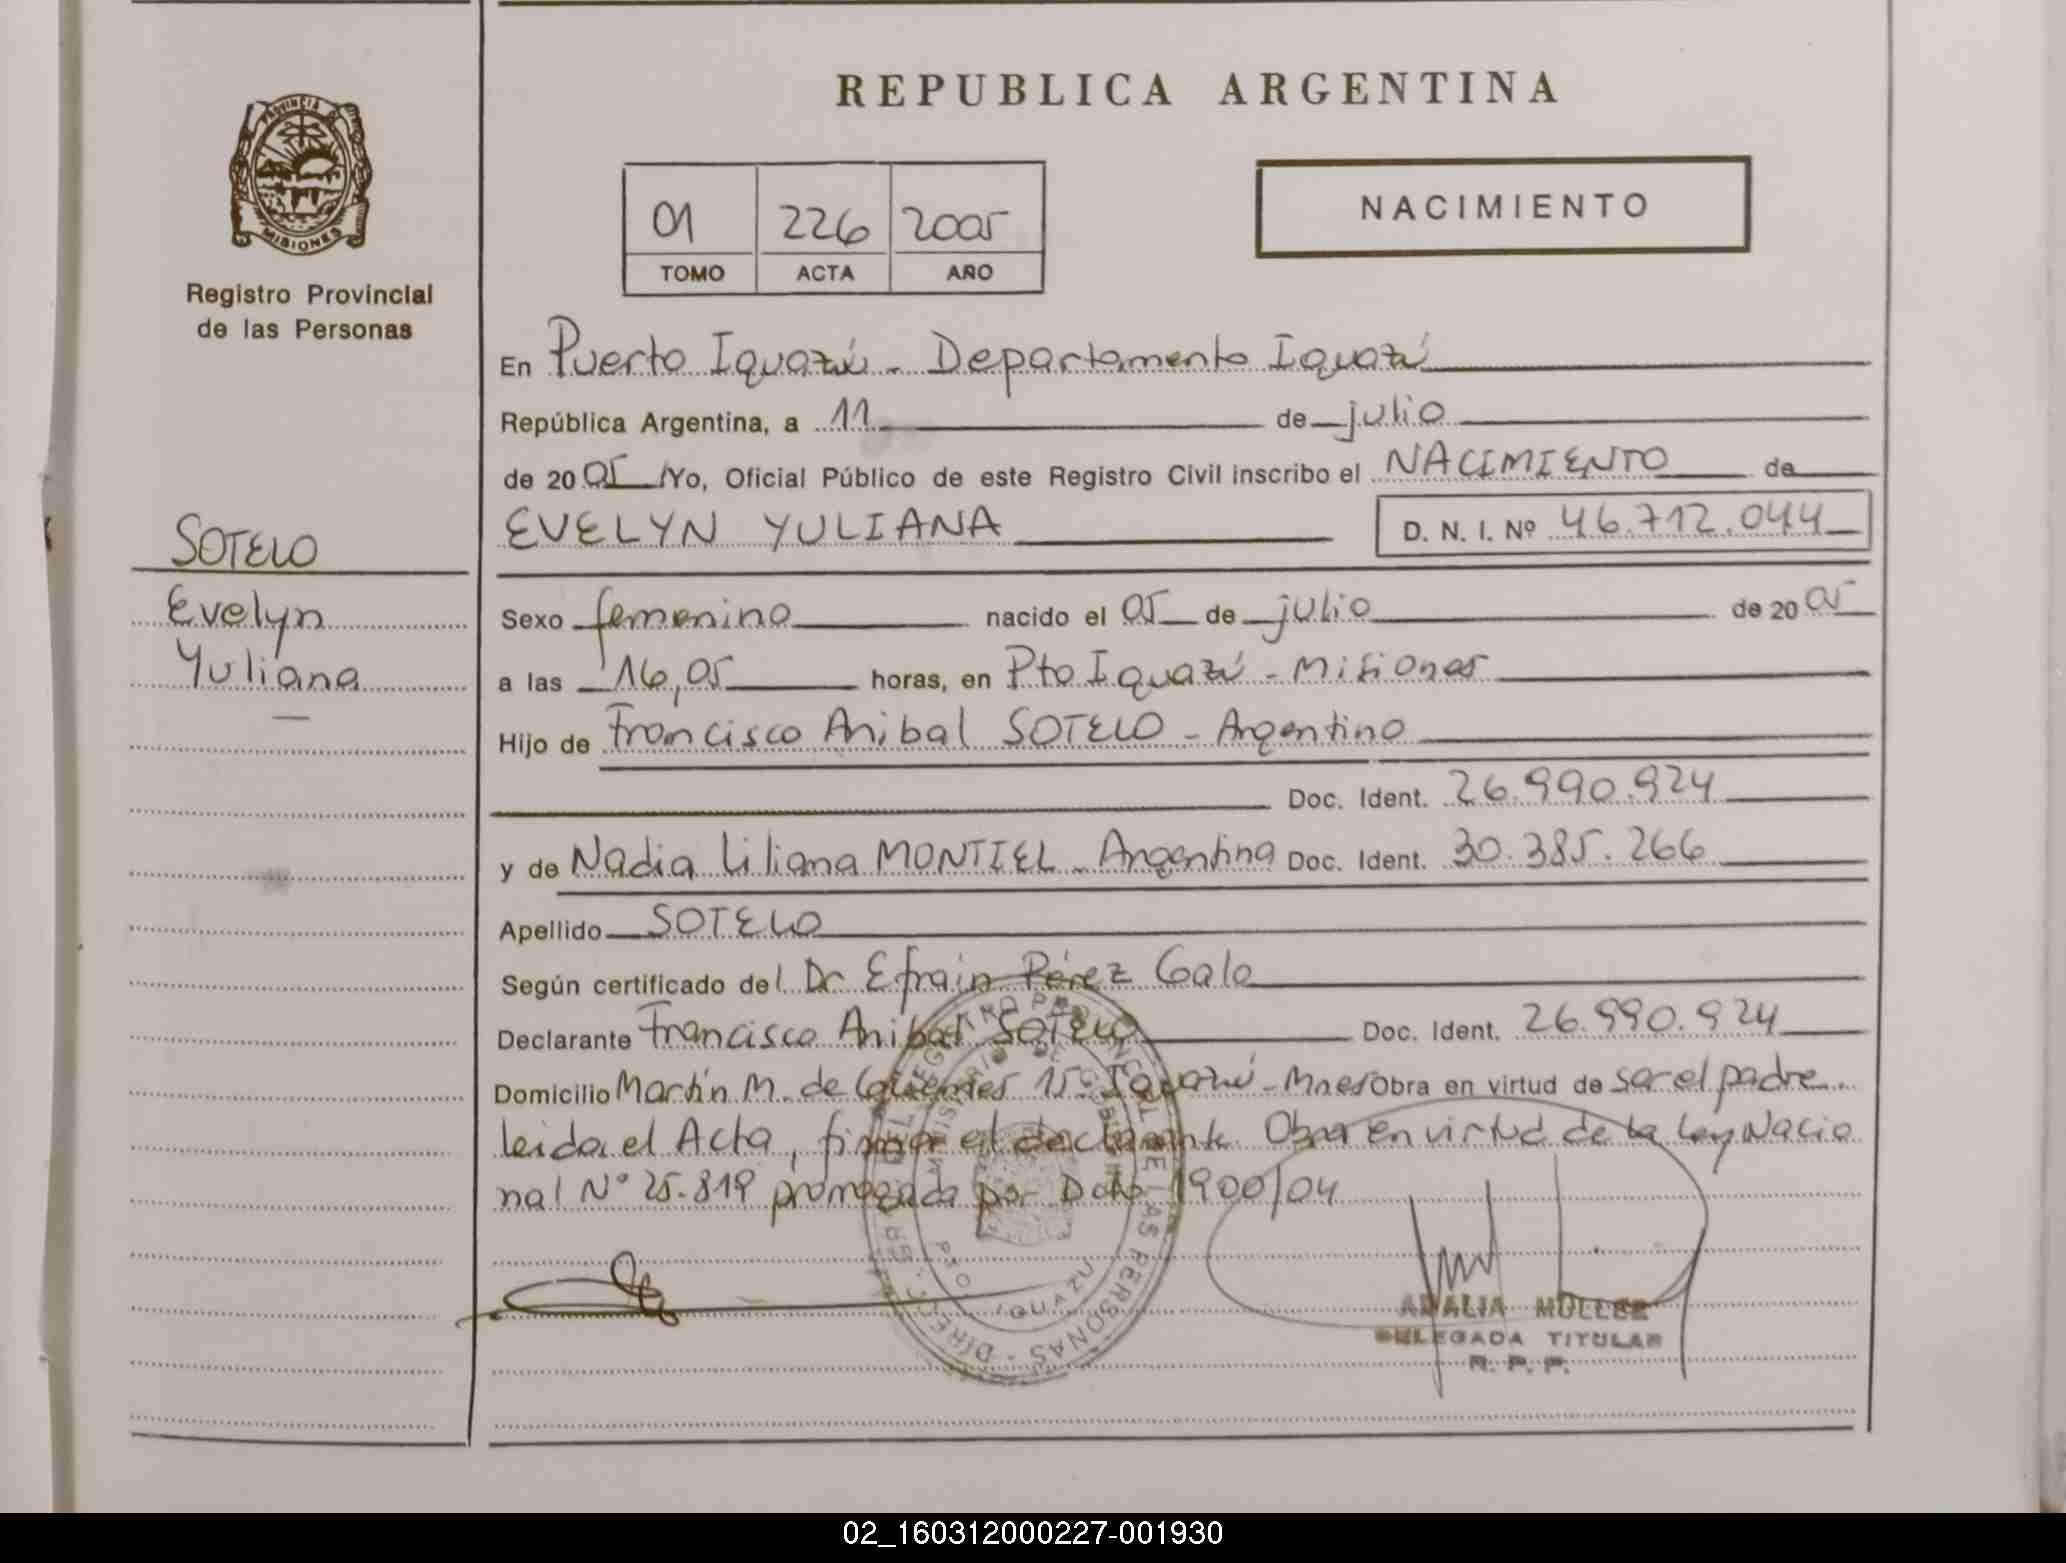 REPUBLICA ARGENTINA
PROVINCIA
MISIONES
Registro Provincial
de las Personas
01 226 2005
TOMO ACTA AÑO
NACIMIENTO
En Puerto Iguazú - Departamento Iguazú
República Argentina, a 11 de julio
de 2005 Yo, Oficial Público de este Registro Civil inscribo el NACIMIENTO de
EVELYN YULIANA D. N. I. Nº 46.712.044
SOTELO
Evelyn
Yuliana
Sexo femenino nacido el 05 de julio de 2005
a las 16,05 horas, en Pto Iguazú - Misiones
Hijo de Francisco Anibal SOTELO - Argentino
Doc. Ident. 26.990.924
y de Nadia Liliana MONTIEL - Argentina Doc. Ident. 30.385.266
Apellido SOTELO
Según certificado del Dr Efraín Pérez Galo
Declarante Francisco Anibal SOTELO Doc. Ident. 26.990.924
Domicilio Martín M. de Güemes 15 - Iguazú - Mnes Obra en virtud de ser el padre.
leida el Acta, firma el declarante. Obra en virtud de la Ley Nacio
nal Nº 25.819 por Dcto 1900/04
IGUAZU
ADALIA MULLER
DELEGADA TITULAR
R. P. P.
02_160312000227-001930